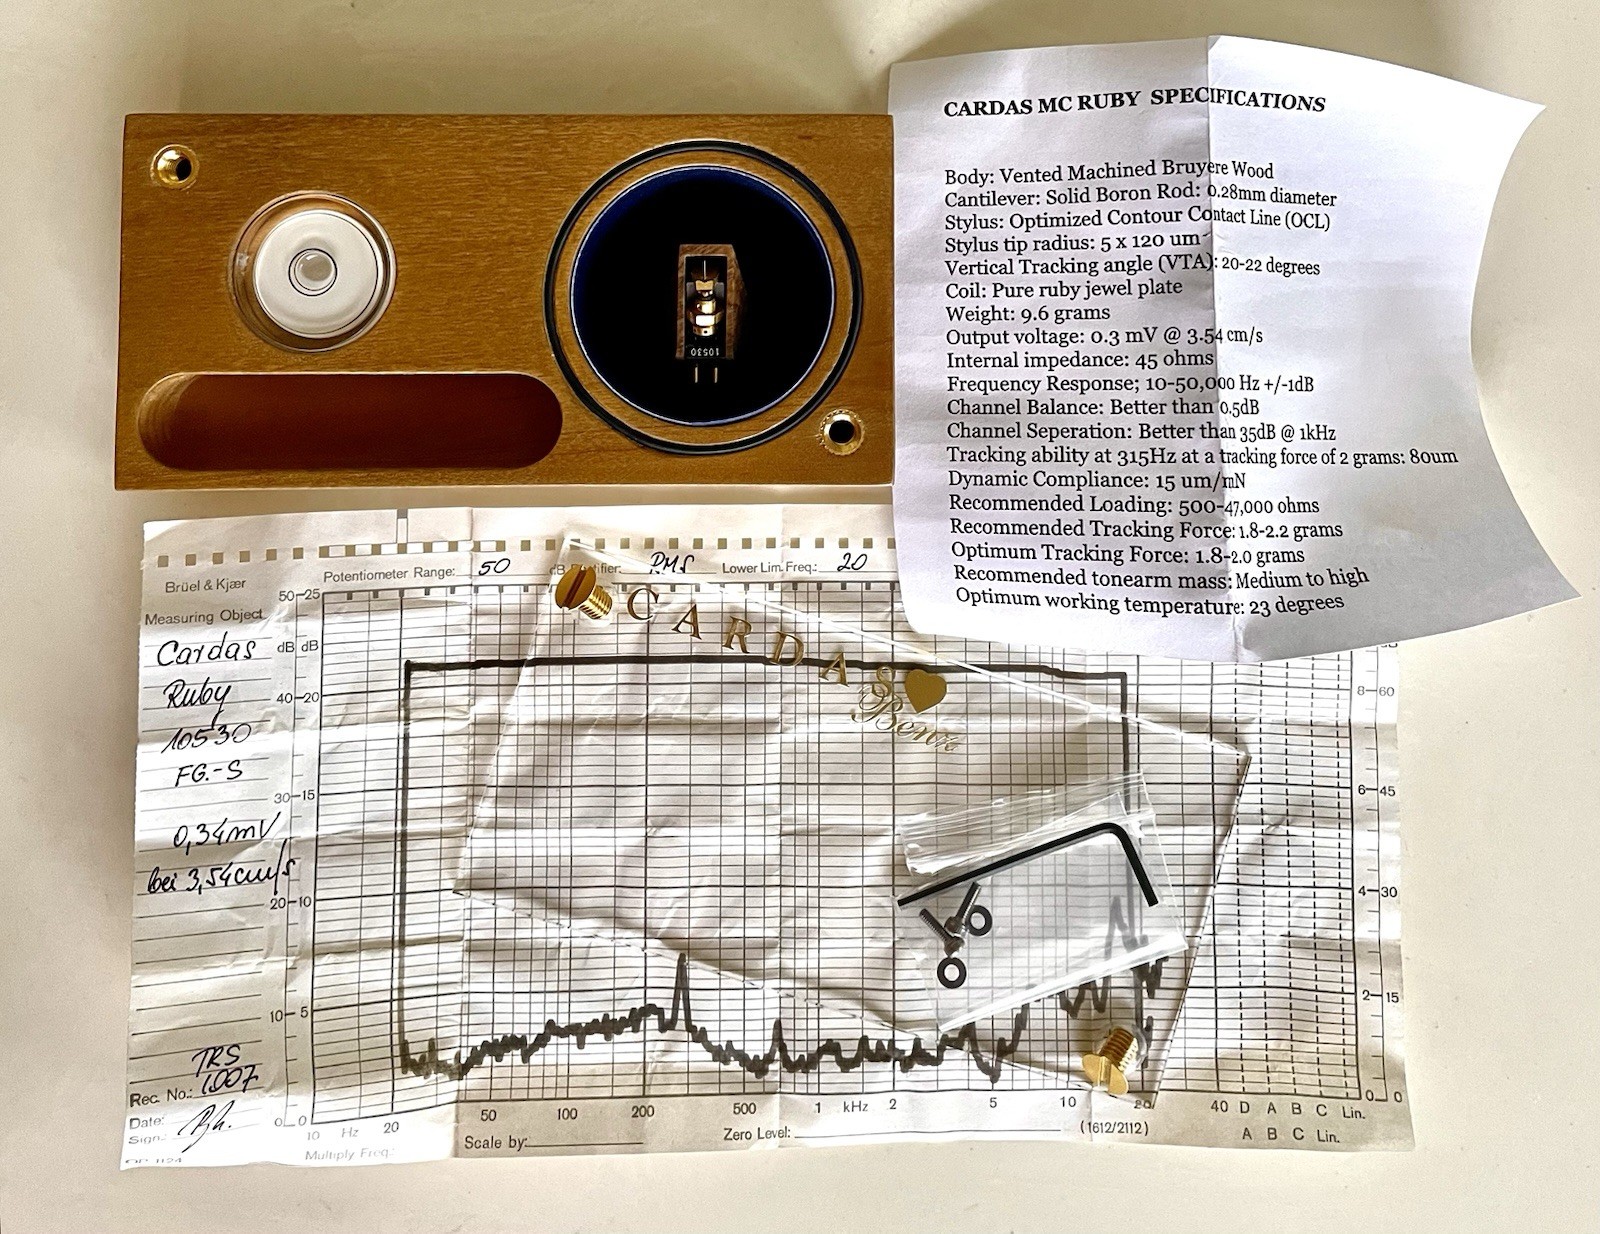 CARDAS MC RUBY SPECIFICATIONS
Body: Vented Machined Bruyere Wood
Cantilever: Solid Boron Rod: 0.28mm diameter
Stylus: Optimized Contour Contact Line (OCL)
Stylus tip radius: 5 x 120 um
Vertical Tracking angle (VTA): 20-22 degrees
Coil: Pure ruby jewel plate
Weight: 9.6 grams
Output voltage: 0.3 mV @ 3.54 cm/s
Internal impedance: 45 ohms
Frequency Response; 10-50,000 Hz +/-1dB
Channel Balance: Better than 0.5dB
Channel Seperation: Better than 35dB @ 1kHz
Tracking ability at 315Hz at a tracking force of 2 grams: 80um
Dynamic Compliance: 15 um/mN
Recommended Loading: 500-47,000 ohms
Recommended Tracking Force: 1.8-2.2 grams
Optimum Tracking Force: 1.8-2.0 grams
Recommended tonearm mass: Medium to high
Optimum working temperature: 23 degrees
10530
Brüel & Kjær
Potentiometer Range: 50 dB Rectifier: RMS Lower Lim. Freq.: 20
Measuring Object
Cardas
Ruby
10530
FG.-S
0,34mV
bei 3,54cm/s
TRS
Rec. No.: 1007
Date:
Sign.:
50 25
dB dB
40 20
30 15
20 10
10 5
0 0
CARDAS
Benz
8 60
6 45
4 30
2 15
0 0
10 Hz 20 50 100 200 500 1 kHz 2 5 10 20 40 D A B C Lin.
A B C Lin.
Multiply Freq.
Scale by:
Zero Level:
(1612/2112)